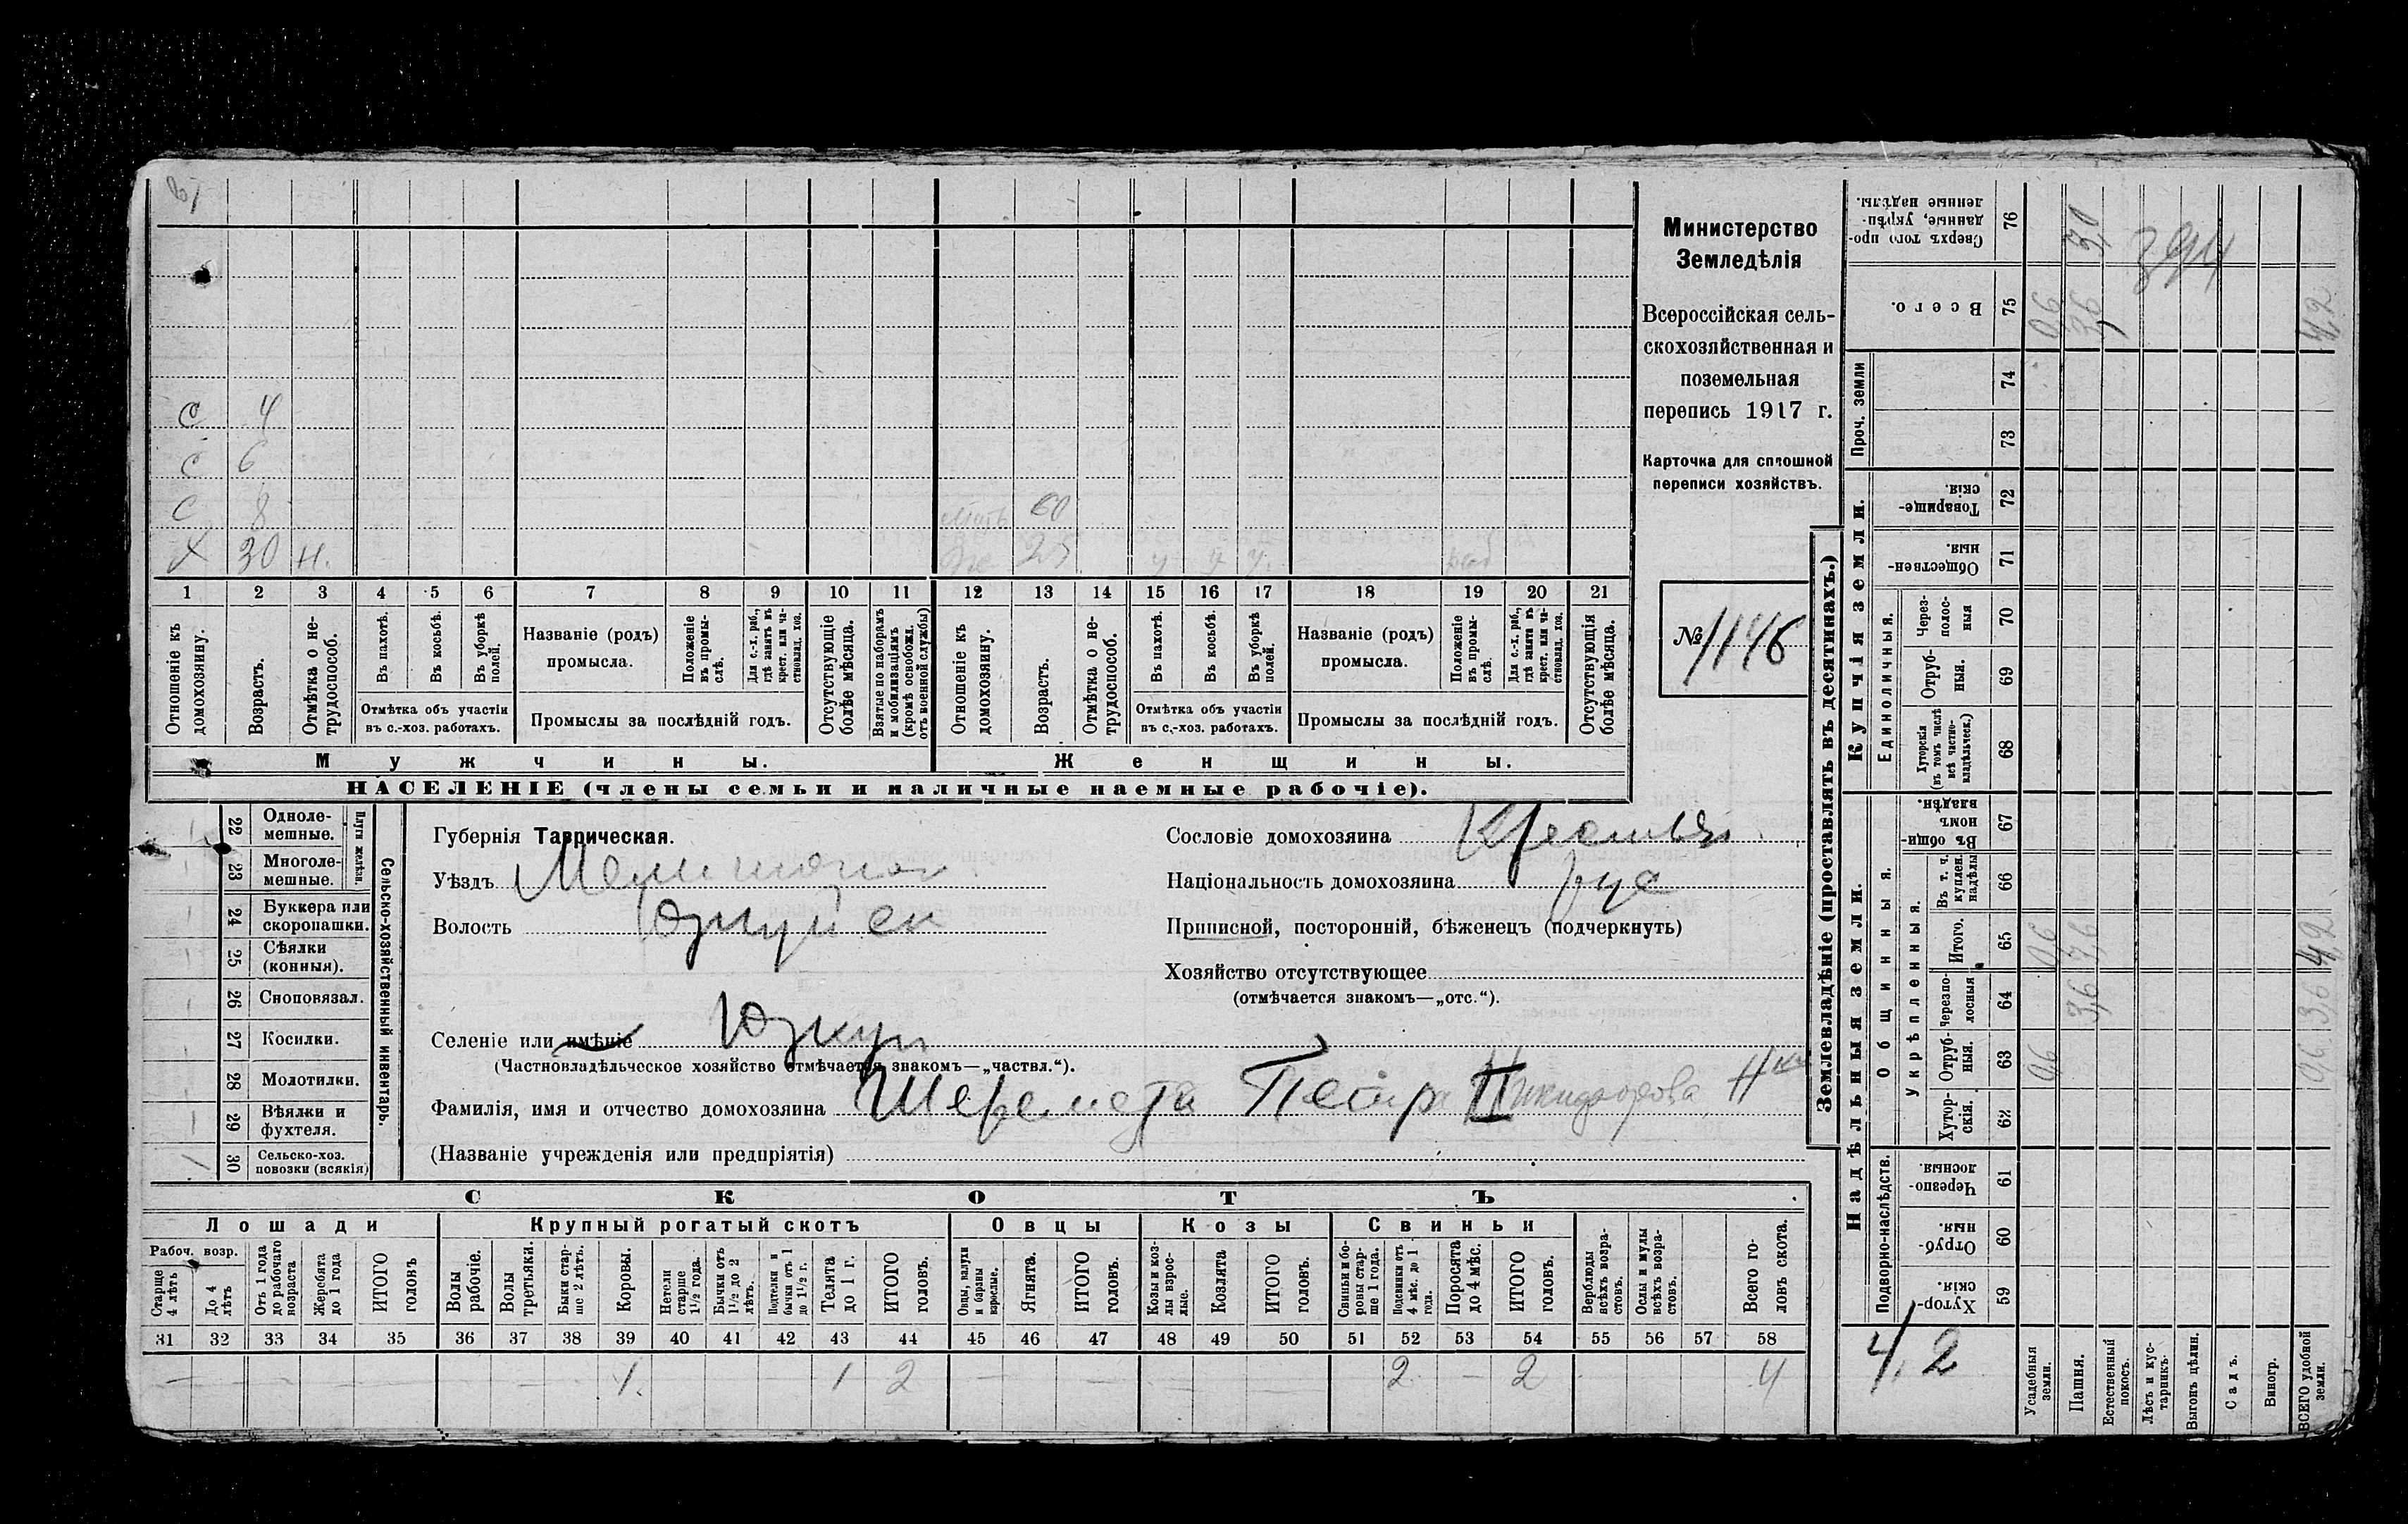 Министерство
Земледѣлія
Всероссійская сель-
скохозяйственная и
поземельная
перепись 1917 г.
Карточка для сплошной
переписи хозяйствъ.
№ 1146
С 4
С 6
С 8
Мать 60
Х 30 н.
Же 25 у у у.
1 2 3 4 5 6 7 8 9 10 11 12 13 14 15 16 17 18 19 20 21
Отношеніе къ домохозяину.
Возрастъ.
Отмѣтка о не-трудоспособ.
Въ пахотѣ.
Въ косьбѣ.
Въ уборкѣ полей.
Отмѣтка объ участіи
въ с.-хоз. работахъ.
Названіе (родъ)
промысла.
Положеніе въ промы-слѣ.
Для с.-х. раб., гдѣ занятъ въ крест. или ча-стновлад. хоз.
Промыслы за послѣдній годъ.
Отсутствующіе болѣе мѣсяца.
Взятые по наборамъ и мобилизаціямъ (кромѣ освобожд. отъ военной службы)
Отношеніе къ домохозяину.
Возрастъ.
Отмѣтка о не-трудоспособ.
Въ пахотѣ.
Въ косьбѣ.
Въ уборкѣ полей.
Отмѣтка объ участіи
въ с.-хоз. работахъ.
Названіе (родъ)
промысла.
Положеніе въ промы-слѣ.
Для с.-х. раб., гдѣ занятъ въ крест. или ча-стновлад. хоз.
Промыслы за послѣдній годъ.
Отсутствующія болѣе мѣсяца.
Мужчины.
Женщины.
НАСЕЛЕНІЕ (члены семьи и наличные наемные рабочіе).
22 Одноле-мешные.
23 Многоле-мешные.
Плуги желѣзн.
24 Буккера или скоропашки.
25 Сѣялки (конныя).
26 Сноповязал.
27 Косилки.
28 Молотилки.
29 Вѣялки и фухтеля.
1 30 Сельско-хоз. повозки (всякія)
Сельско-хозяйственный инвентарь.
Губернія Таврическая.
Уѣздъ Мелитопол
Волость Юзкуйск
Селеніе или имѣніе Юзкуи
(Частновладѣльческое хозяйство отмѣчается знакомъ—„частвл.“).
Фамилія, имя и отчество домохозяина Шеремета Петр II
(Названіе учрежденія или предпріятія)
Сословіе домохозяина Крестьян.
Національность домохозяина рус
Приписной, посторонній, бѣженецъ (подчеркнуть)
Хозяйство отсутствующее
(отмѣчается знакомъ—„отс.“).
СКОТЪ
Лошади
Крупный рогатый скотъ
Овцы
Козы
Свиньи
Рабоч. возр.
Старше 4 лѣтъ
До 4 лѣтъ
Отъ 1 года до рабочаго возраста
Жеребята до 1 года
ИТОГО головъ
Волы рабочіе.
Волы третьяки.
Быки стар-ше 2 лѣтъ.
Коровы.
Нетели старше 1 1/2 года.
Бычки отъ 1 1/2 до 2 лѣтъ.
Подтелки и бычки отъ 1 до 1 1/2 г.
Телята до 1 г.
ИТОГО головъ.
Овцы, валухи и бараны взрослые.
Ягнята.
ИТОГО головъ.
Козы и коз-лы взрос-лые.
Козлята
ИТОГО головъ.
Свиньи и бо-ровы стар-ше 1 года.
Подсвинки отъ 4 мѣс. до 1 года.
Поросята до 4 мѣс.
ИТОГО головъ.
Верблюды всѣхъ возра-стовъ.
Ослы и мулы всѣхъ возра-стовъ.
Всего го-ловъ скота.
31 32 33 34 35 36 37 38 39 40 41 42 43 44 45 46 47 48 49 50 51 52 53 54 55 56 57 58
1. 1 2 2 2 4
Землевладѣніе (проставлять въ десятинахъ.)
Надѣльныя земли.
Купчія земли.
Проч. земли
Подворно-наслѣдств.
Общинныя.
Укрѣпленныя.
Единоличныя.
76 Сверхъ того про-данные, укрѣп-ленные надѣлы. 3,0
394
75 Всего. 0,6 3,6 4,2
74
73
72 Товарище-скія.
71 Обществен-ныя.
70 Через-полос-ныя
69 Отруб-ныя.
68 Хуторскія (въ томъ числѣ всѣ частно-владѣльческ.)
67 Въ общин-номъ владѣн.
66 Въ т. ч. куплен. надѣлы
65 Итого. 0,6 3,6 4,2
64 Черезпо-лосныя 3,6 3,6
63 Отруб-ныя. 0,6 0,6
62 Хутор-скія.
61 Черезпо-лосныя.
60 Отруб-ныя.
59 Хутор-скія.
4,2
Усадебныя земли.
Пашня.
Естественный покосъ.
Лѣсъ и кус-тарникъ.
Выгонъ цѣлин.
Садъ.
Виногр.
ВСЕГО удобной земли.